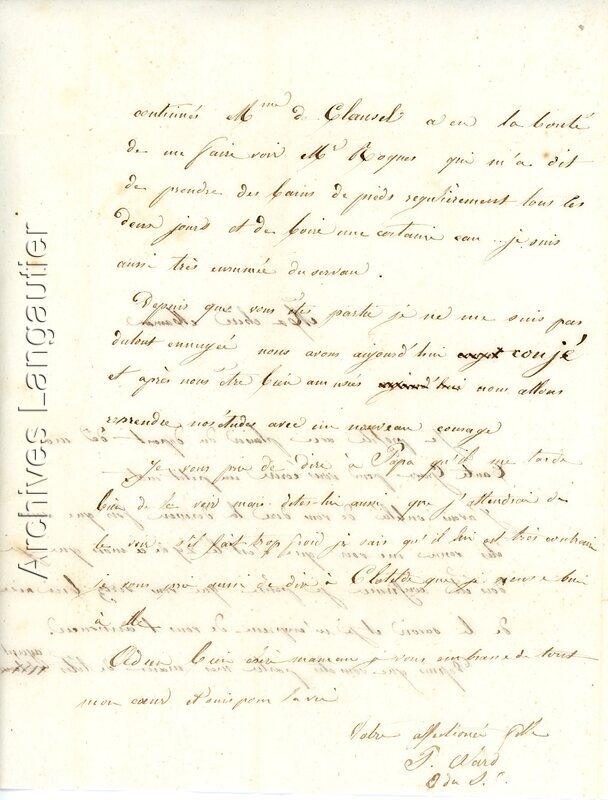 continués Mme de Clausel a eu la bonté
de me faire voir Mr Roques qui m'a dit
de prendre des bains de pieds regulièrement tous les
deux jours et de boire une certaine eau .. je suis
aussi très enrumée du cerveau .
Depuis que vous ete partie je ne me suis pas
dutout ennuyée nous avons aujourd'hui conjé
et après nous être bien amusés nous allons
reprendre nos études avec un nouveau courage
Je vous prie de dire à Papa qu'il me tarde
bien de le voir mais dites-lui aussi que j'attendrai de
le voir s'il fait trop froid je sais qu'il lui est très contraire
je vous prie aussi de dire à Clotilde que je pense bien
à elle
Adieu bien chère maman je vous embrasse de tout
mon cœur et suis pour la vie
Votre affectionée fille
Archives Langautier